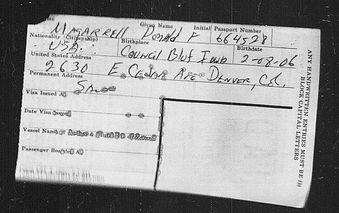 Given Name Initial Passport Number
MAGARRELL Donald F 664528
Nationality (Citizenship) Birthplace Birthdate
USA. Council Bluf Iowa 2-08-06
United States Address
2630 E. Ave Denver, Col.
Permanent Address
Same
Visa Issued At
Date Visa
Vessel Name
Passenger Boarded At
ANY HANDWRITTEN ENTRIES MUST BE IN
BLOCK CAPITAL LETTERS